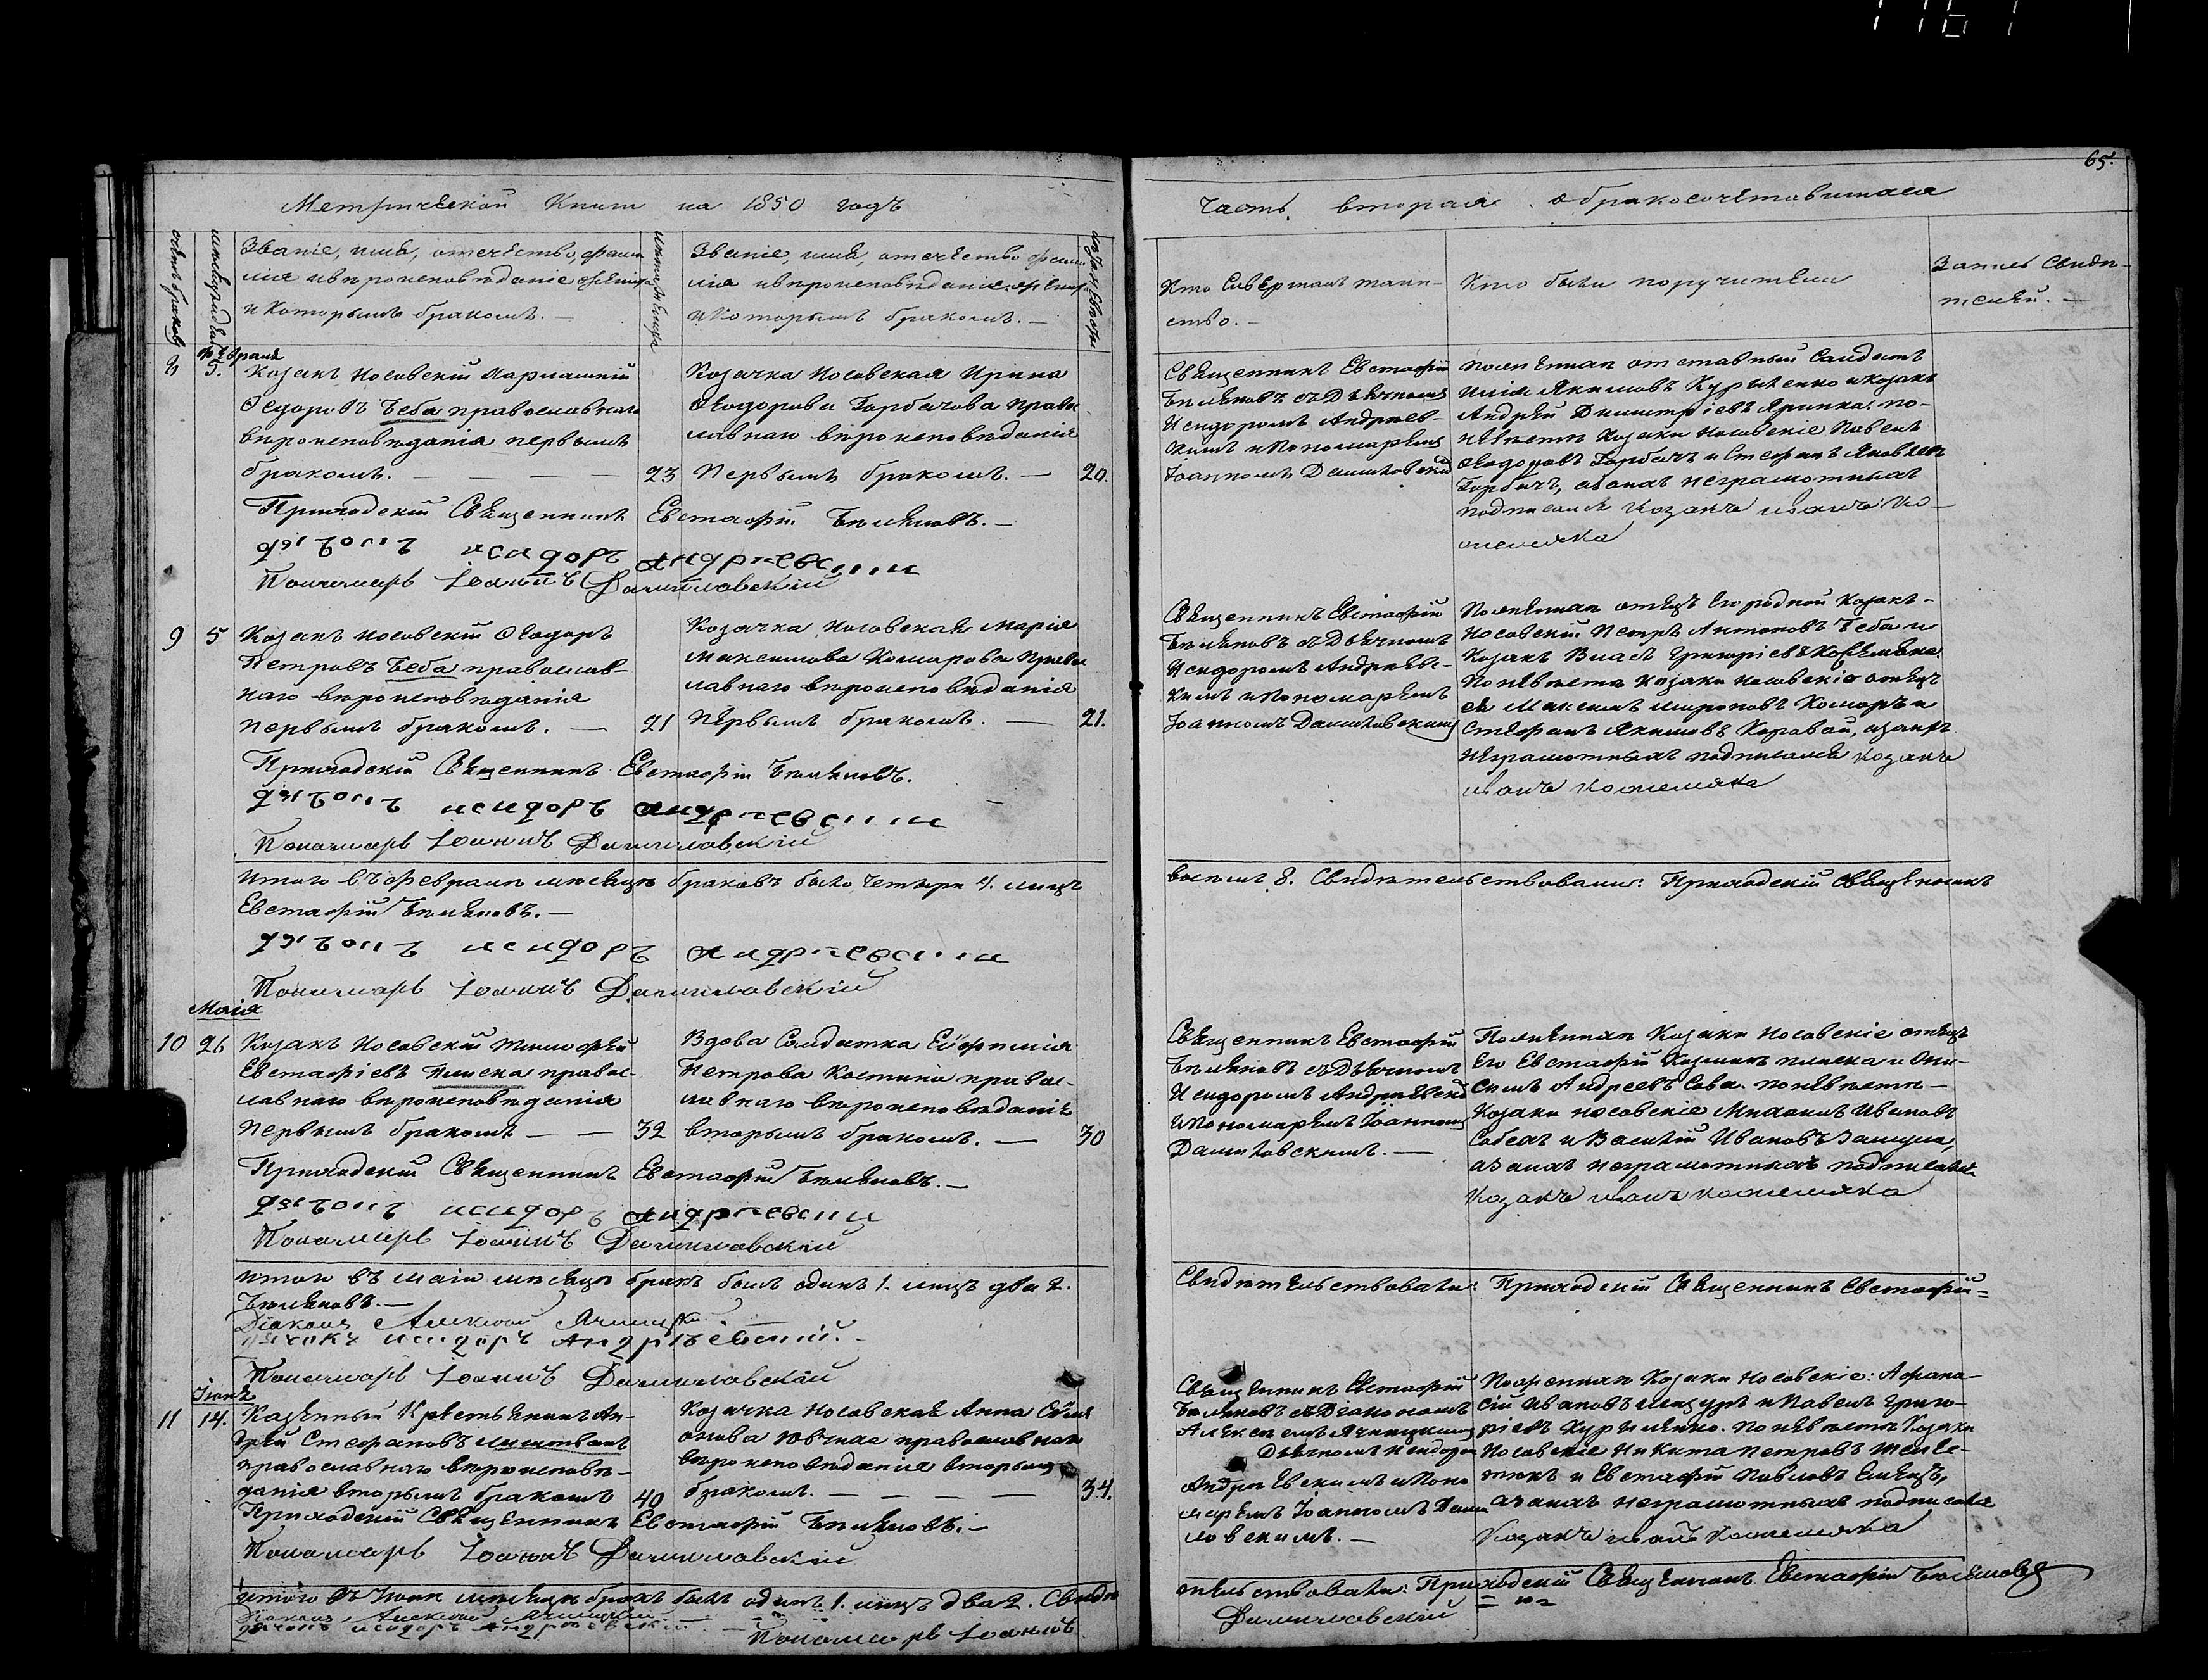 65.
Метрической Книги на 1850 годъ
Часть вторая о бракосочетавшихся
Счетъ браковъ
Званіе, имя, отечество, фами-
лія и вероисповеданіе жениха
и которымъ бракомъ. —
лета жениха
Званіе, имя, отечество фами-
лія и вероисповеданіе
и которымъ бракомъ. —
Кто совершалъ таин-
ство. —
Кто были поручители
Запись свиде-
телей. —
Февраля
5.
Козакъ Носовскій
Ѳедоровъ Беба православнаго
вероисповеданія первымъ
бракомъ. — — —
23
Козачка Носовская Ирина
Ѳеодорова Горбачова правос-
лавнаго вероисповеданія
первымъ бракомъ. —
20.
Священникъ Евстафій
Белановъ съ Дьячкомъ
Исидоромъ Андріев-
скимъ и Пономаремъ
Іоанномъ Даниловскимъ
По женихе отставный Салдатъ
Илія Якимовъ Куриленко и козакъ
Андрей Димитріевъ Яринка, по
невесте козаки Носовскіе Павелъ
Ѳеодоровъ Горбачъ и Стефанъ Яковлевъ
Горбачъ, а за нихъ неграмотныхъ
подписался козакъ Иванъ Ко-
жемяка
Приходскій Священникъ Евстафій Белановъ. —
Дьячокъ Исидоръ Андріевскій
Пономарь Іоаннъ Даниловскій
9 5
Козакъ Носовскій Ѳеодоръ
Петровъ Беба православ-
наго вероисповеданія
первымъ бракомъ. —
21
Козачка Носовская Марія
Максимова Комарова правос-
лавнаго вероисповеданія
первымъ бракомъ. —
21.
Священникъ Евстафій
Белановъ съ Дьячкомъ
Исидоромъ Андріевс-
кимъ и Пономаремъ
Іоанномъ Даниловскимъ
По женихе отецъ его родной козакъ
Носовскій Петръ Антоновъ Беба и
Козакъ Власъ Григоріевъ Кожемяка.
По невесте козаки Носовскіе отецъ
ея Максимъ Мироновъ Комаръ и
Стефанъ Якимовъ Коровай, а за нихъ
неграмотныхъ подписался козакъ
Иванъ Кожемяка
Приходскій Священникъ Евстафій Белановъ.
Дьячокъ Исидоръ Андріевскій
Пономарь Іоаннъ Даниловскій
Итого въ феврале месяце браковъ было четыри 4. лицъ
восемь 8. Свидетельствовали: Приходскій Священникъ
Евстафій Белановъ. —
Дьячокъ Исидоръ Андріевскій
Пономарь Іоаннъ Даниловскій
Маія
10 26
Козакъ Носовскій Тимофей
Евстафіевъ Плиска правос-
лавнаго вероисповеданія
первымъ бракомъ — —
32
Вдова Солдатка Евфимія
Петрова Костина правос-
лавнаго вероисповеданія
вторымъ бракомъ. —
30
Священникъ Евстафій
Белановъ съ Дьячкомъ
Исидоромъ Андріевски
и Пономаремъ Іоанномъ
Даниловскимъ. —
По женихе Козаки Носовскіе отецъ
его Евстафій Плиска и Они-
симъ Андреевъ Сова. по невесте —
Козаки Носовскіе Михаилъ Ивановъ
и Василій Ивановъ
а за нихъ неграмотныхъ подписался
козакъ Иванъ Кожемяка
Приходскій Священникъ Евстафій Белановъ. —
Дьячокъ Исидоръ Андріевскій
Пономарь Іоаннъ Даниловскій
Итого въ маіи месяце бракъ былъ одинъ 1. лицъ два 2.
Свидетельствовали: Приходскій Священникъ Евстафій
Белановъ. —
Діаконъ Алексій
Дьячокъ Исидоръ Андріевскій. —
Пономарь Іоаннъ Даниловскій
Іюня
11 14.
Казенный Крестьянинъ Ан-
дрей Стефановъ
православнаго вероиспове-
данія вторымъ бракомъ
40
Козачка Носовская Анна
православнаго
вероисповеданія вторымъ
бракомъ. — — — —
34.
Священникъ Евстафій
Белановъ съ Діакономъ
Алексіемъ
Дьячкомъ Исидоромъ
Андріевскимъ и Поно-
маремъ Іоанномъ Дани-
ловскимъ. —
По женихе Козаки Носовскіе: Афана-
сій Ивановъ и Павелъ Григо-
ріевъ Куриленко. По невесте Козаки
Носовскіе Никита Петровъ
и Евстафій Павловъ
а за нихъ неграмотныхъ подписался
Козакъ Иванъ Кожемяка
Приходскій Священникъ Евстафій Белановъ. —
Пономарь Іоаннъ Даниловскій
Итого въ Іюне месяце бракъ былъ одинъ 1. лицъ два 2. Свиде-
тельствовали: Приходскій Священникъ Евстафій Белановъ
Діаконъ Алексій
Дьячокъ Исидоръ Андріевскій. —
Пономарь Іоаннъ
Даниловскій